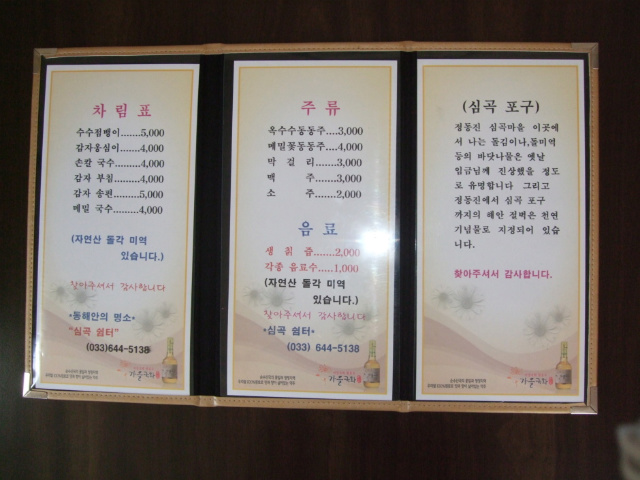 차림표
수수점뱅이.......5,000
감자옹심이.......4,000
손칼 국수........4,000
감자 부침........4,000
감자 송편........5,000
메밀 국수........4,000
(자연산 돌각 미역
있습니다.)
찾아주셔서 감사합니다
*동해안의 명소*
"심곡 쉼터"
(033)644-5138
가을국화
주 류
옥수수동동주....3,000
메밀꽃동동주....4,000
막 걸 리........3,000
맥 주........3,000
소 주........2,000
음 료
생 칡 즙.......2,000
각종 음료수.....1,000
(자연산 돌각 미역
있습니다.)
찾아주셔서 감사합니다
*심곡 쉼터*
(033) 644-5138
가을국화
(심곡 포구)
정동진 심곡마을 이곳에
서 나는 돌김이나,돌미역
등의 바닷나물은 옛날
임금님께 진상했을 정도
로 유명합니다 그리고
정동진에서 심곡 포구
까지의 해안 절벽은 천연
기념물로 지정되어 있습
니다.
찾아주셔서 감사합니다.
가을국화